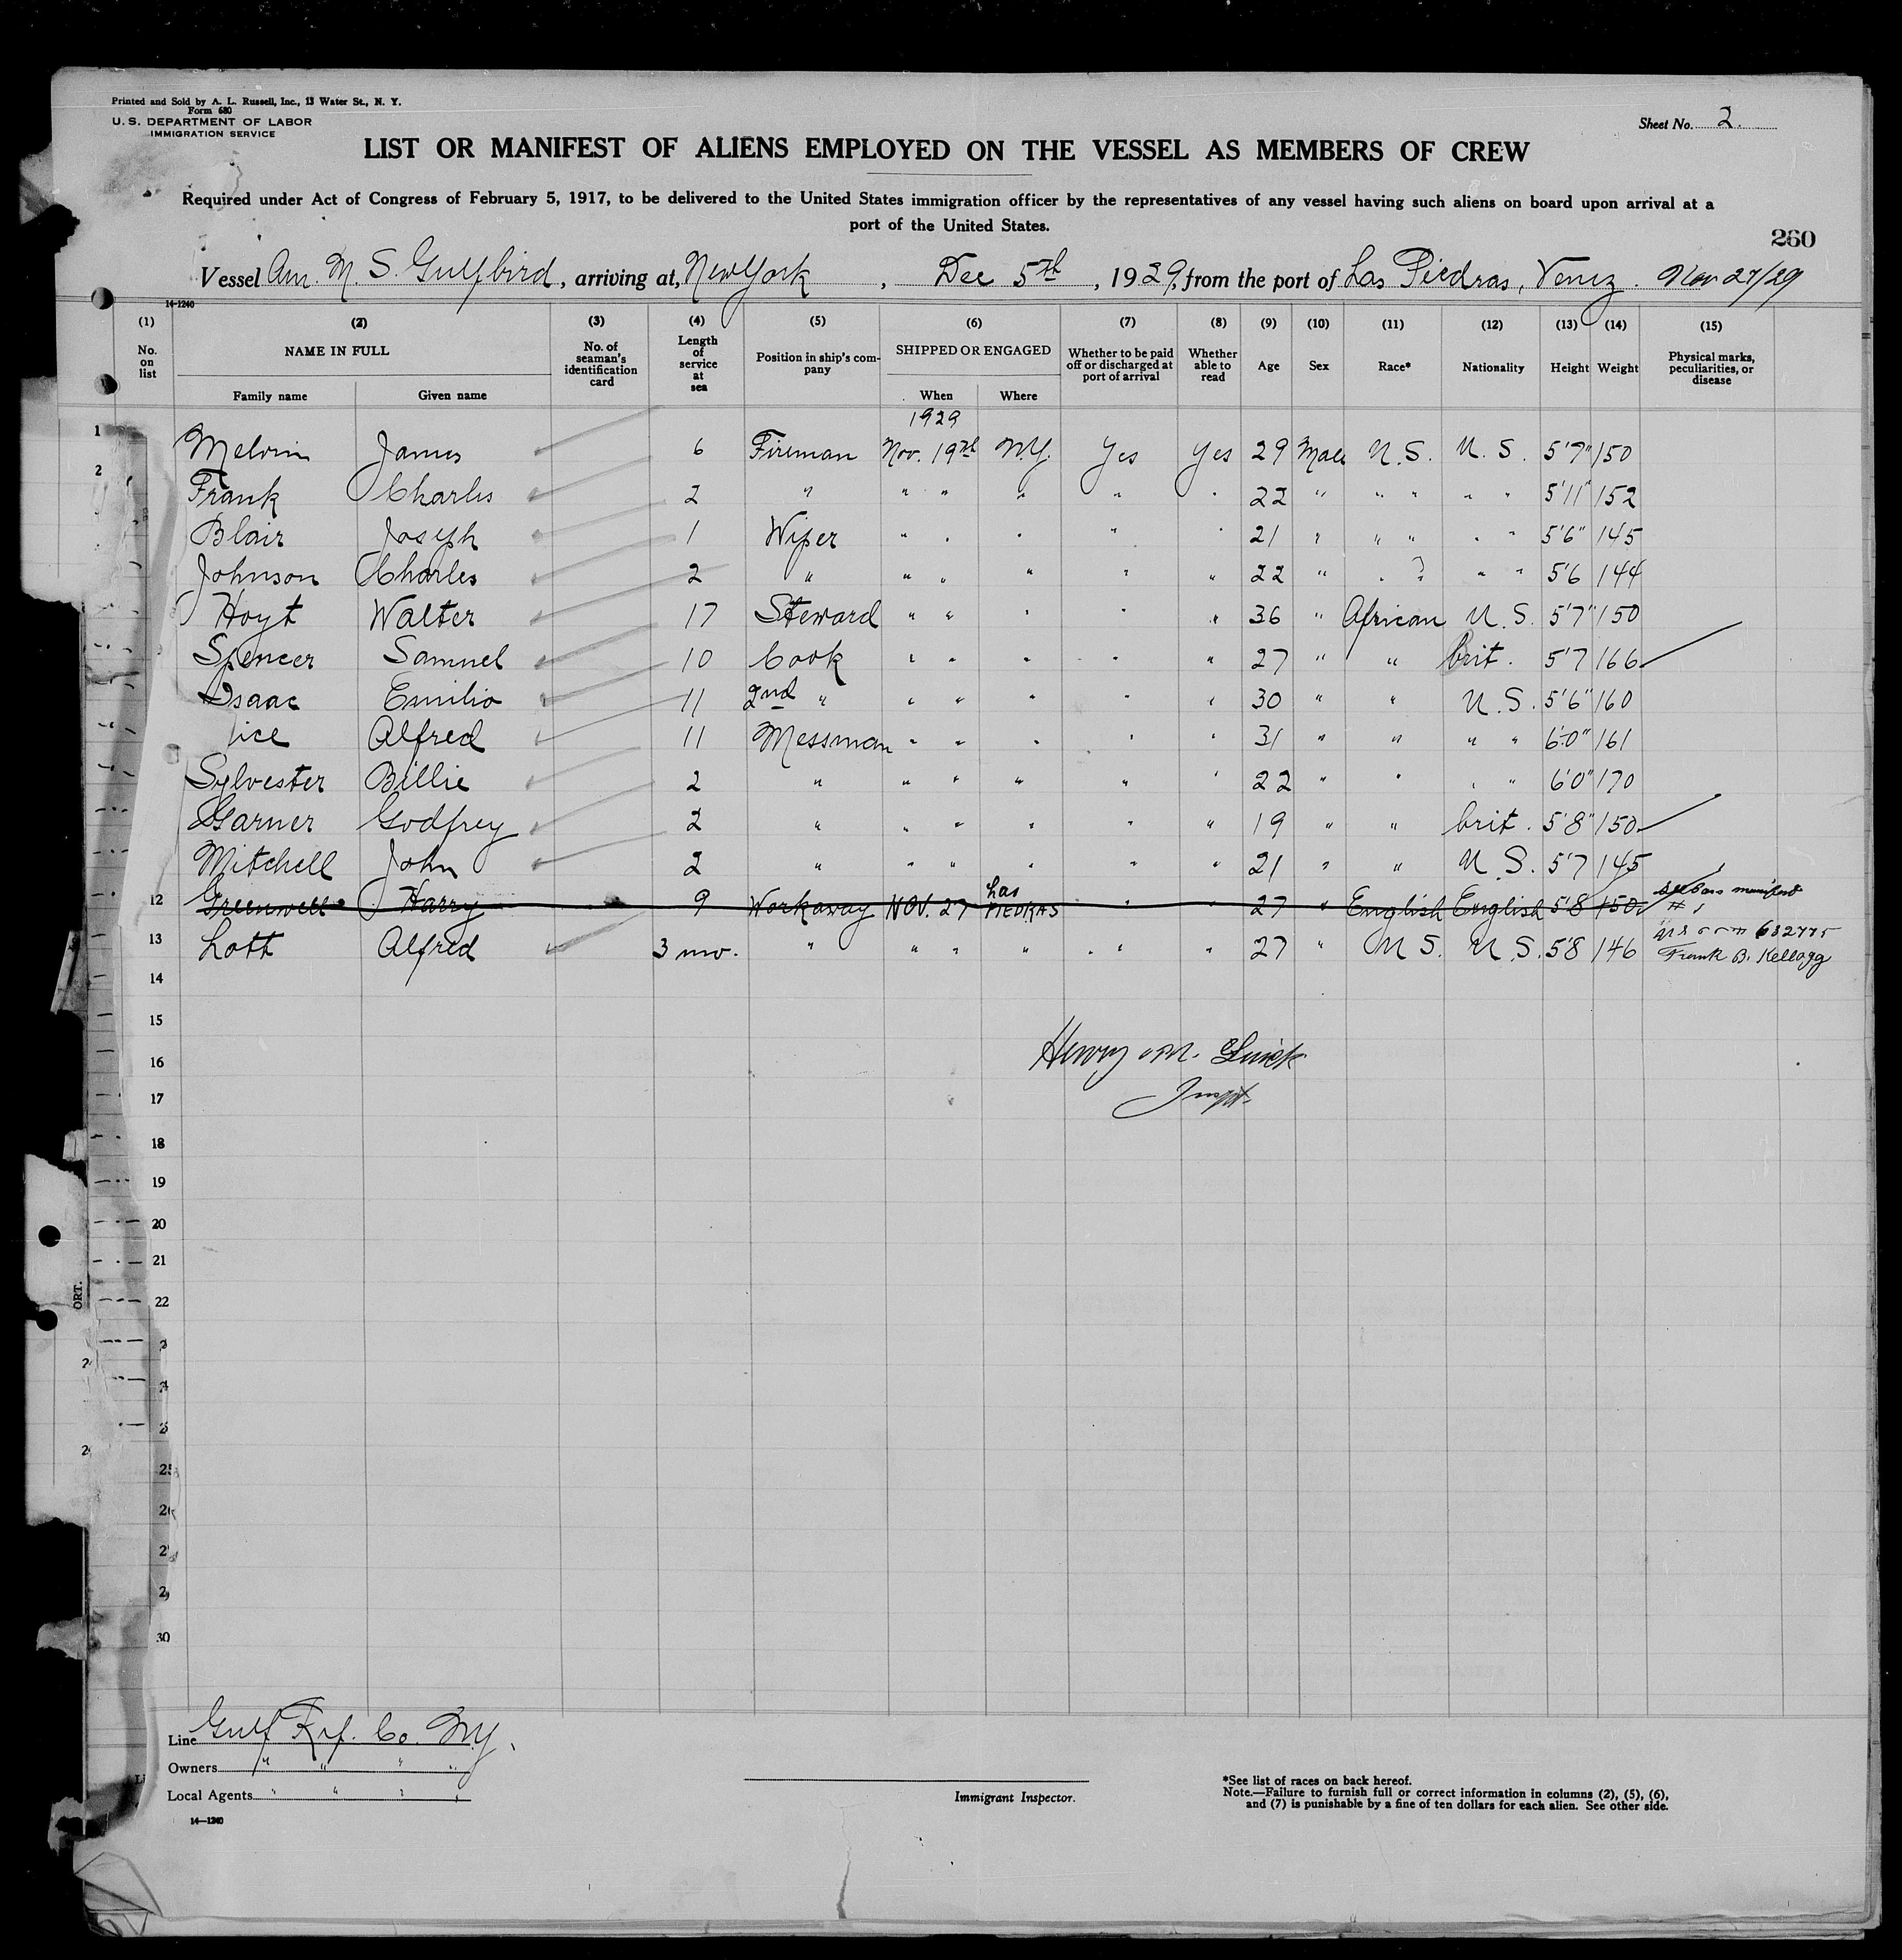 Printed and Sold by A. L. Russell, Inc., 13 Water St., N. Y.
Form 680
U. S. DEPARTMENT OF LABOR
IMMIGRATION SERVICE
Sheet No. 2.
LIST OR MANIFEST OF ALIENS EMPLOYED ON THE VESSEL AS MEMBERS OF CREW
Required under Act of Congress of February 5, 1917, to be delivered to the United States immigration officer by the representatives of any vessel having such aliens on board upon arrival at a
port of the United States.
260
Vessel Am. M. S. Gulfbird, arriving at, New York, Dec 5th, 1929, from the port of Las Piedras, Venez. Nov 27/29
14-1240
(1) (2) (3) (4) (5) (6) (7) (8) (9) (10) (11) (12) (13) (14) (15)
No. on list NAME IN FULL No. of seaman's identification card Length of service at sea Position in ship's company SHIPPED OR ENGAGED Whether to be paid off or discharged at port of arrival Whether able to read Age Sex Race* Nationality Height Weight Physical marks, peculiarities, or disease
Family name Given name When Where
1929
1 Melvin James 6 Fireman Nov. 19th N.Y. Yes Yes 29 Male U.S. U.S. 5'7" 150
2 Frank Charles 2 " " " " " " 22 " " " " " 5'11" 152
Blair Joseph 1 Wiper " " " " " 21 " " " " " 5'6" 145
Johnson Charles 2 " " " " " " 22 " " " " " 5'6 144
Hoyt Walter 17 Steward " " " " " 36 " African U.S. 5'7" 150
Spencer Samuel 10 Cook " " " " " 27 " " brit. 5'7 166
Isaac Emilio 11 2nd " " " " " " 30 " " U.S. 5'6" 160
ice Alfred 11 Messman " " " " " 31 " " " " 6'0" 161
Sylvester Billie 2 " " " " " " 22 " " " " 6'0" 170
Garner Godfrey 2 " " " " " " 19 " " brit. 5'8" 150
Mitchell John 2 " " " " " " 21 " " U.S. 5'7 145
12 Greenwell Harry 9 Workaway NOV. 27 Las PIEDRAS " " 27 " English English 5'8 150 manifest # 1
13 Lott Alfred 3 mo. " " " " " " 27 " U.S. U.S. 5'8 146 632775
Frank B. Kellogg
14
15
16
17
18
19
20
21
22
25
30
Henry M.
Inspt.
ORT.
Line Gulf Ref. Co. N.Y.
Owners " " " "
Local Agents " " " "
14-1240
Immigrant Inspector.
*See list of races on back hereof.
Note.—Failure to furnish full or correct information in columns (2), (5), (6),
and (7) is punishable by a fine of ten dollars for each alien. See other side.